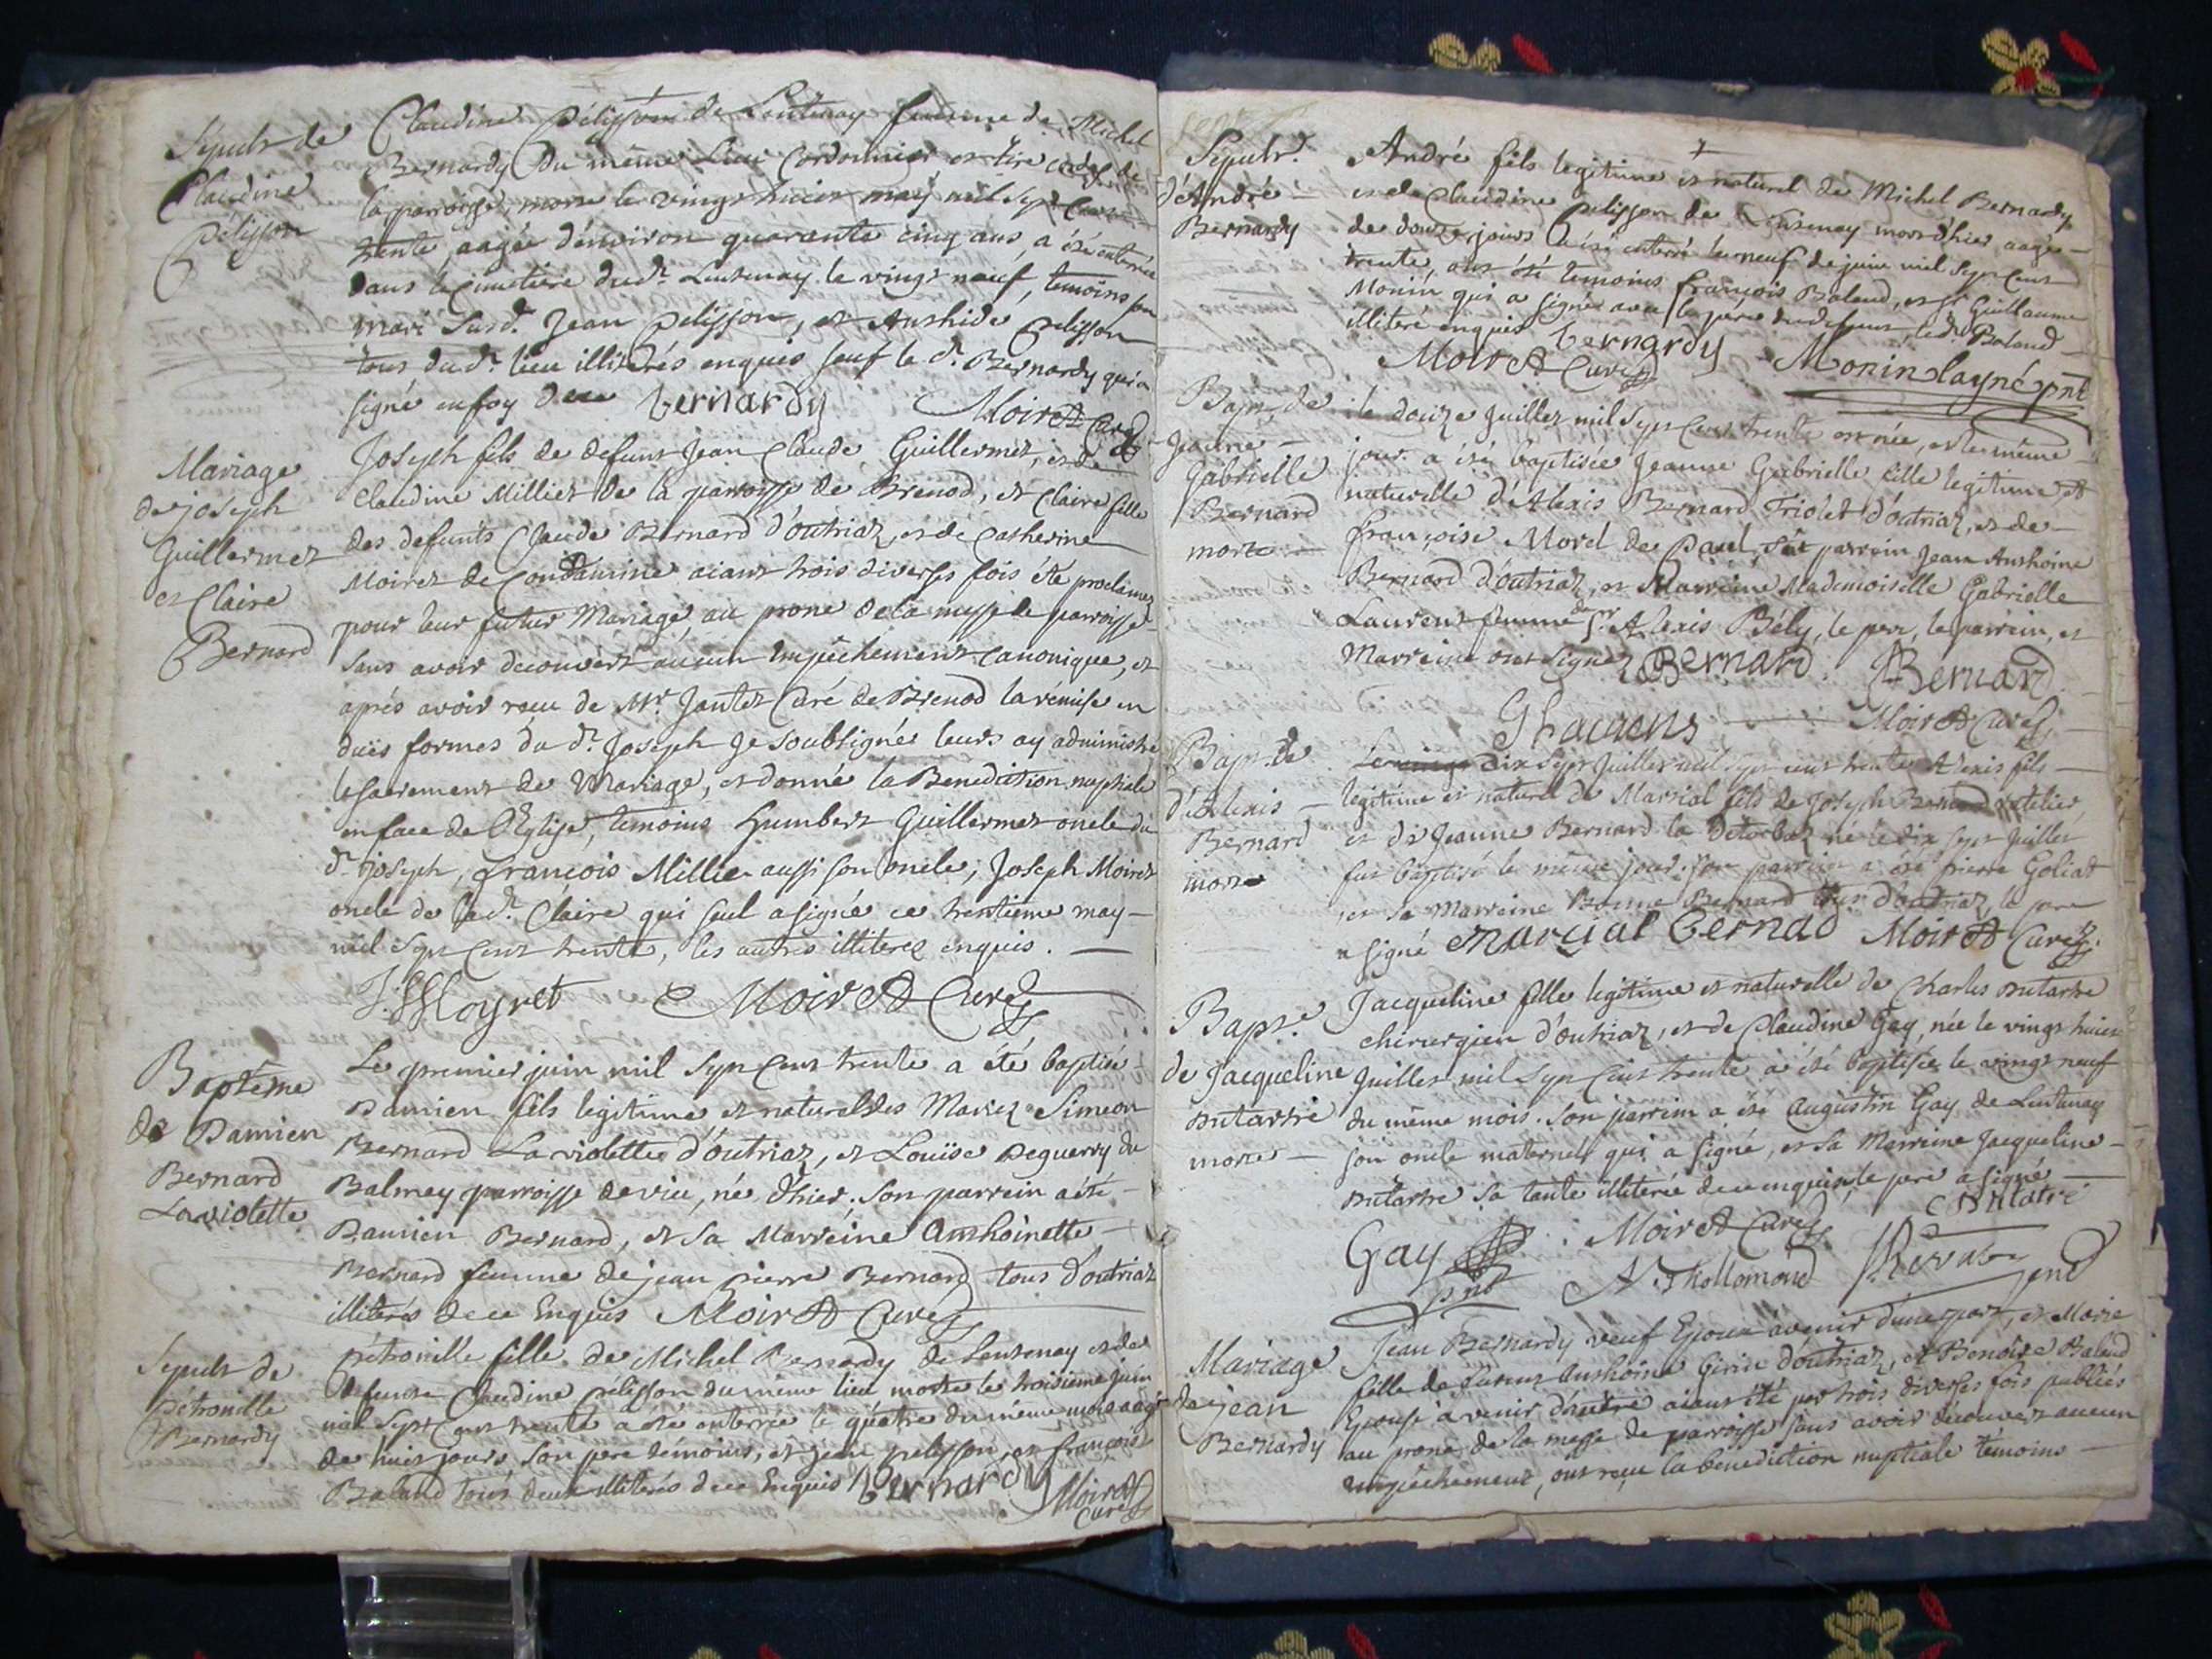 Sépult de
Claudine
Pélisson
Claudine Pélisson de Lentenay femme de Michel
Bernardy du même Lieu Cordonnier, et
la parroisse, morte le vingt huict may mil sept cent
trente, aagée d'environ quarante cinq ans, a été enterrée
dans le cimetiere dud.t Lentenay le vingt neuf, temoins son
mari Susd.t Jean Pelisson, et Anthide Pelisson
tous du d.t lieu illiterés enquis sauf le d.t Bernardy qui a
signé en foy de ce bernardy Moiret Curé
Mariage
de joseph
Guillermet
et Claire
Bernard
Joseph fils de defunt Jean Claude Guillermet, et de
Claudine Milliet de la parroisse de Brénod, et Claire fille
des defunts Claude Bernard d'outriaz, et de Catherine
Moiret de Condamine aiant trois diverses fois été proclamez
pour leur futur Mariage, au prone de la messe de parroisse
sans avoir decouvert aucun Empêchement Canonique, et
aprés avoir reçu de Mr. Jantet Curé de Brenod la rémise en
duës formes du d.t Joseph Je soubsigné leurs ay administré
le sacrement de Mariage, et donné la Benediction nuptiale
en face de l'Eglise, temoins Humbert Guillermet oncle du
d.t joseph, françois Millie aussi son oncle, Joseph Moiret
oncle de lad.t Claire qui seul a signé ce trentieme may
mil sept cent trente, les autres illiterez enquis.
J. Moyret Moiret Curé
Baptéme
de Damien
Bernard
Laviolette
Le premier juin mil sept cent trente a été baptisé
Damien fils legitime et naturel des Mariez Simeon
Bernard Laviolette d'outriaz, et Louïse Deguerry du
Balmay parroisse de vieu, né d'hier. Son parrein a été
Damien Bernard, et sa Marreine Anthoinette
Bernard femme de jean pierre Bernard tous d'outriaz
illiterés de ce Enquis Moiret Curé
Sepult de
Pétronille
Bernardy
Pétronille fille de Michel Bernardy de Lentenay et de
defunte Claudine Pélisson du même lieu morte le troisieme juin
mil sept cent trente a été enterrée le quatre du même mois aagée
de huit jours son pere témoins, et jean pelisson, et françois
Baland tous deux illiterés de ce Enquis bernardy Moiret
Curé
Sepult.
d'André
Bernardy
André fils legitime et naturel de Michel Bernardy
et de Claudine Pelisson de Lentenay mort d'hier aagé
de douze jours a été enterré le neuf de juin mil sept cent
trente, ont été temoins françois Baland, et Sr Guillaume
Monin qui a signé avec le pere du defunt, led.t Baland
illiteré enquis bernardy
Moiret Curé Monin layné pnt
Bapt. de
Jeanne
Gabrielle
Bernard
morte
le douze juillet mil sept cent trente est née, et le même
jour a été baptisée Jeanne Gabrielle fille legitime et
naturelle d'Alexis Bernard Triolet d'outriaz, et de
françoise Morel de Paul, Sut parrein Jean Anthoine
Bernard d'outriaz, et Marreine Mademoiselle Gabrielle
Laurent femme du Sr. Alexis Bély, le pere, le parrein, et
Marreine ont signé Bernard Bernard
G Laurens Moiret Curé
Bapt. de
d'Alexis
Bernard
mort
Le dix sept Juillet mil sept cent trente Alexis fils
legitime et naturel de Marsial fils de Joseph Bernard
et de Jeanne Bernard la né le dix sept Juillet
fut baptisé le même jour. son parrein a été pierre Goliat
et sa Marreine Bernard tous d'outriaz, le pere
a signé marcial bernad Moiret Curé
Bapt.e
de Jacqueline
Dutartre
morte
Jacqueline fille legitime et naturelle de Charles Dutartre
chirurgien d'outriaz, et de Claudine Gay, née le vingt huict
Juillet mil sept cent trente a été baptisée le vingt neuf
du même mois. Son parrein a été Augustin Gay de Lentenay
son oncle maternel qui a signé, et sa Marreine Jacqueline
Dutartre sa tante illiterée de ce enquise le pere a signé
Dutatre
Gay Moiret Curé
pnt A. Thollomond
Mariage
de jean
Bernardy
Jean Bernardy veuf Epoux avenir d'une part, et Marie
fille de furent Anthoine Girin d'outriaz, et Benoite Baland
Epouse avenir d'autre aiant été par trois diverses fois publiés
au prone de la messe de parroisse sans avoir découvert aucun
empéchement, ont reçu la benediction nuptiale témoins